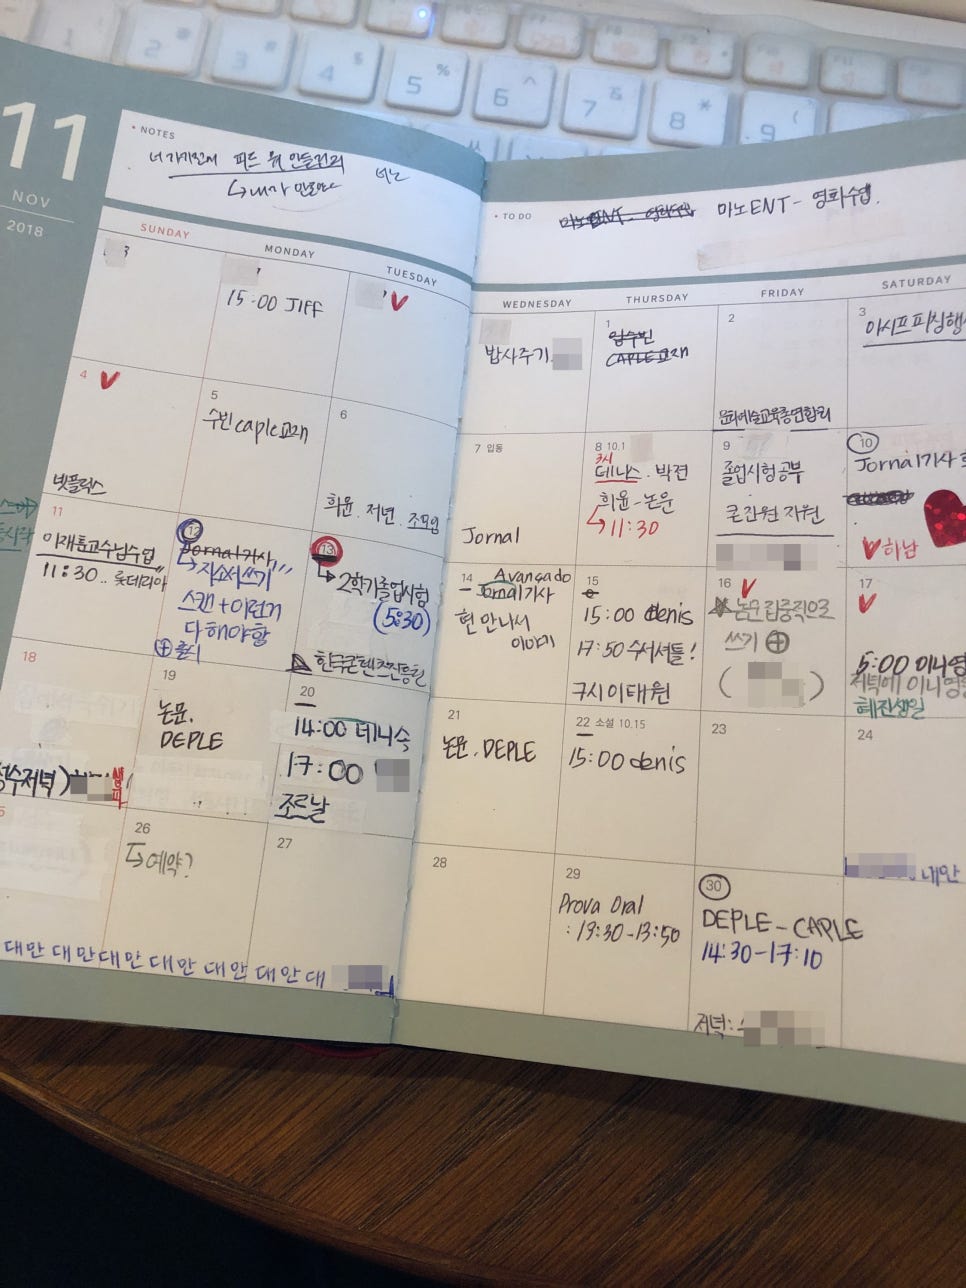 11
NOV
2018
NOTES
TO DO
마노ENT - 영화수업.
SUNDAY
MONDAY
TUESDAY
WEDNESDAY
THURSDAY
FRIDAY
SATURDAY
15:00 JIFF
밥사주기
1
임수빈
CAPLE교재
2
문화예술교육총연합회
3
4
넷플릭스
5
수빈caple교재
6
희윤. 저년. 조모임
7 입동
Jornal
8 10.1
3시
데니스. 박전
희윤-논문
11:30
9
졸업시험공부
큰잔원 지원
10
Jornal기사
하남
11
이재흠교수님수업
11:30.. 롯데리아
12
Jornal기사
자소서쓰기
스캔+이런거
다해야함
13
2학기졸업시험
(5:30)
한국콘텐츠진흥원
14
Avançado
Jornal기사
15
15:00 denis
17:50 수서셔틀!
7시이태원
16
논문집중적으로
쓰기
17
5:00 이니영
저녁에 이니영
혜진생일
18
19
논문.
DEPLE
20
14:00 데니스
17:00
조르날
21
논문. DEPLE
22 소설 10.15
15:00 denis
23
24
대만
26
예약?
27
28
29
Prova Oral
: 13:30-13:50
30
DEPLE-CAPLE
14:30-17:10
저녁:
대만 대만 대만 대만 대만 대만 대